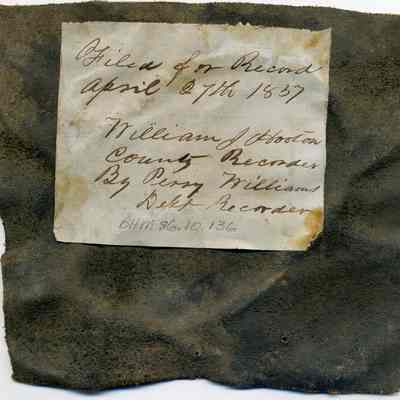 Filed for Record
April 27th 1857
William J Hooton
County Recorder
By Perry Williams
Dept Recorder
BHM 86.10.136